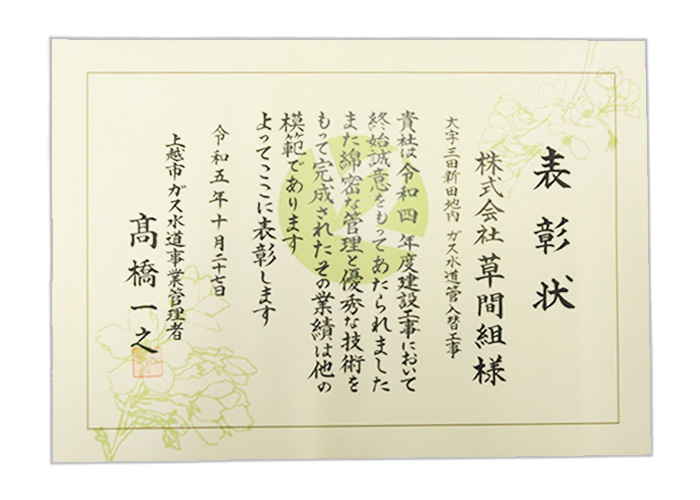 表彰状
株式会社 草間組様
大字三田新田地内 ガス水道管入替工事
貴社は令和四年度建設工事において
終始誠意をもってあたられました
また綿密な管理と優秀な技術を
もって完成されたその業績は他の
模範であります
よってここに表彰します
令和五年十月二十七日
上越市ガス水道事業管理者
髙橋一之